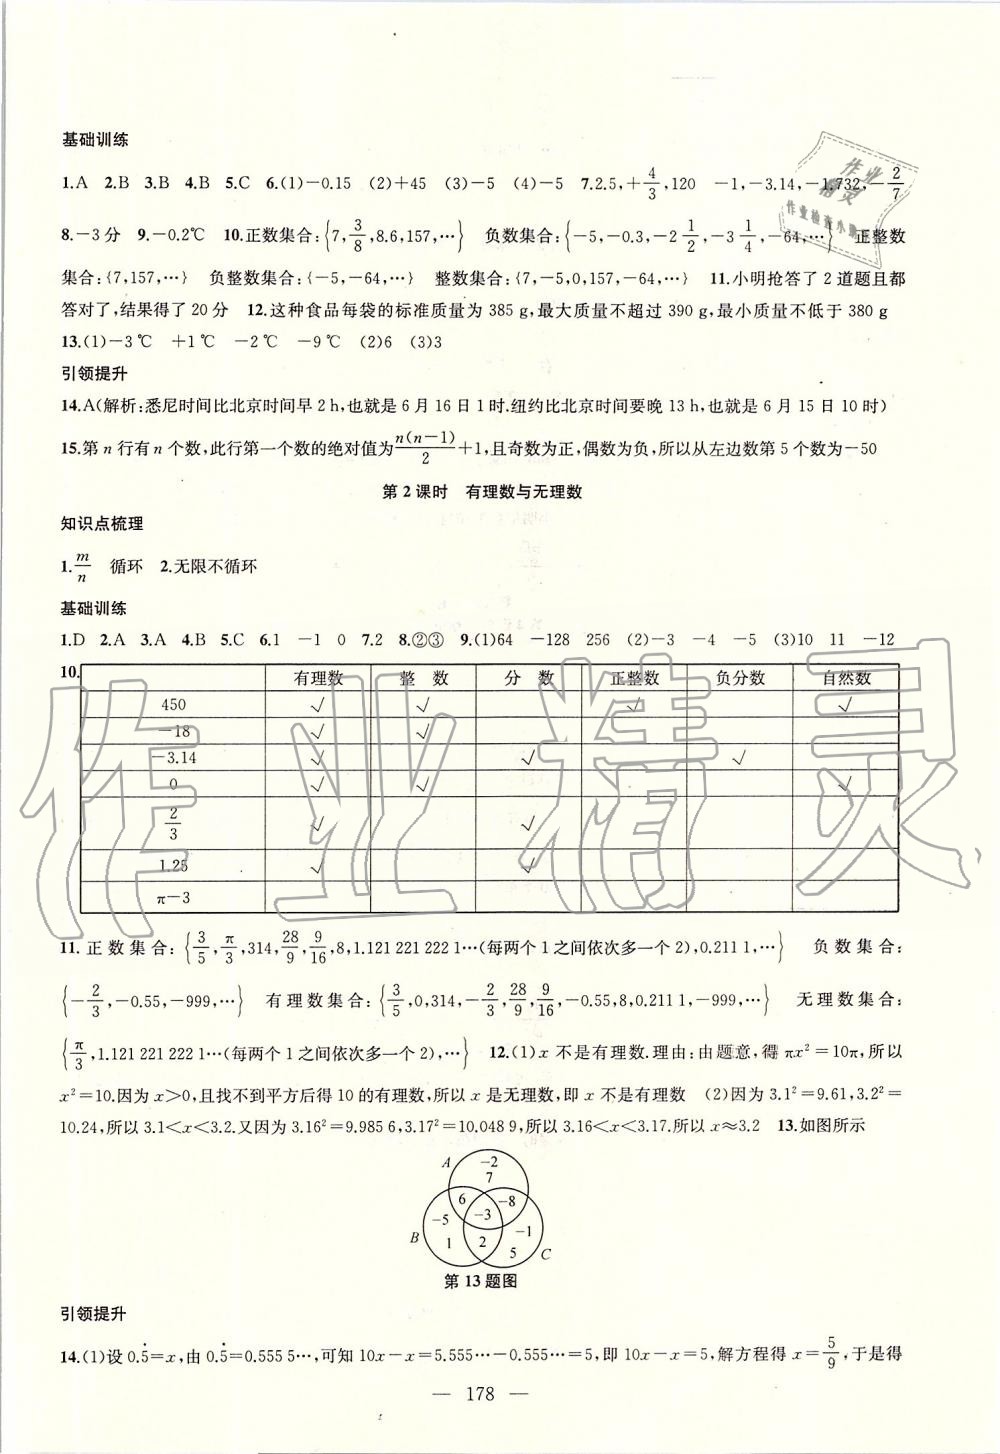 基础训练
1.A 2.B 3.B 4.B 5.C 6.(1)-0.15 (2)+45 (3)-5 (4)-5 7.2.5,+4/3,120 -1,-3.14,-1.732,-2/7
8.-3分 9.-0.2℃ 10.正数集合:{7,3/8,8.6,157,…} 负数集合:{-5,-0.3,-2 1/2,-3 1/4,-64,…} 正整数
集合:{7,157,…} 负整数集合:{-5,-64,…} 整数集合:{7,-5,0,157,-64,…} 11.小明抢答了2道题且都
答对了,结果得了20分 12.这种食品每袋的标准质量为385 g,最大质量不超过390 g,最小质量不低于380 g
13.(1)-3℃ +1℃ -2℃ -9℃ (2)6 (3)3
引领提升
14.A(解析:悉尼时间比北京时间早2 h,也就是6月16日1时.纽约比北京时间要晚13 h,也就是6月15日10时)
15.第n行有n个数,此行第一个数的绝对值为n(n-1)/2+1,且奇数为正,偶数为负,所以从左边数第5个数为-50
第2课时 有理数与无理数
知识点梳理
1.m/n 循环 2.无限不循环
基础训练
1.D 2.A 3.A 4.B 5.C 6.1 -1 0 7.2 8.②③ 9.(1)64 -128 256 (2)-3 -4 -5 (3)10 11 -12
10. 有理数 整 数 分 数 正整数 负分数 自然数
450 √ √ √ √
-18 √ √
-3.14 √ √ √
0 √ √ √
2/3 √ √
1.25 √ √
π-3
11.正数集合:{3/5,π/3,314,28/9,9/16,8,1.121 221 222 1…(每两个1之间依次多一个2),0.211 1,…} 负数集合:
{-2/3,-0.55,-999,…} 有理数集合:{3/5,0,314,-2/3,28/9,9/16,-0.55,8,0.211 1,-999,…} 无理数集合:
{π/3,1.121 221 222 1…(每两个1之间依次多一个2),…} 12.(1)x不是有理数.理由:由题意,得πx²=10π,所以
x²=10.因为x>0,且找不到平方后得10的有理数,所以x是无理数,即x不是有理数 (2)因为3.1²=9.61,3.2²=
10.24,所以3.1<x<3.2.又因为3.16²=9.985 6,3.17²=10.048 9,所以3.16<x<3.17.所以x≈3.2 13.如图所示
A -2
7
6 -8
-3
-5 -1
B 1 2 5 C
第13题图
引领提升
14.(1)设0.5̇=x,由0.5̇=0.555 5…,可知10x-x=5.555…-0.555…=5,即10x-x=5,解方程得x=5/9,于是得
— 178 —
作业精灵
作业
精灵
作业检查小